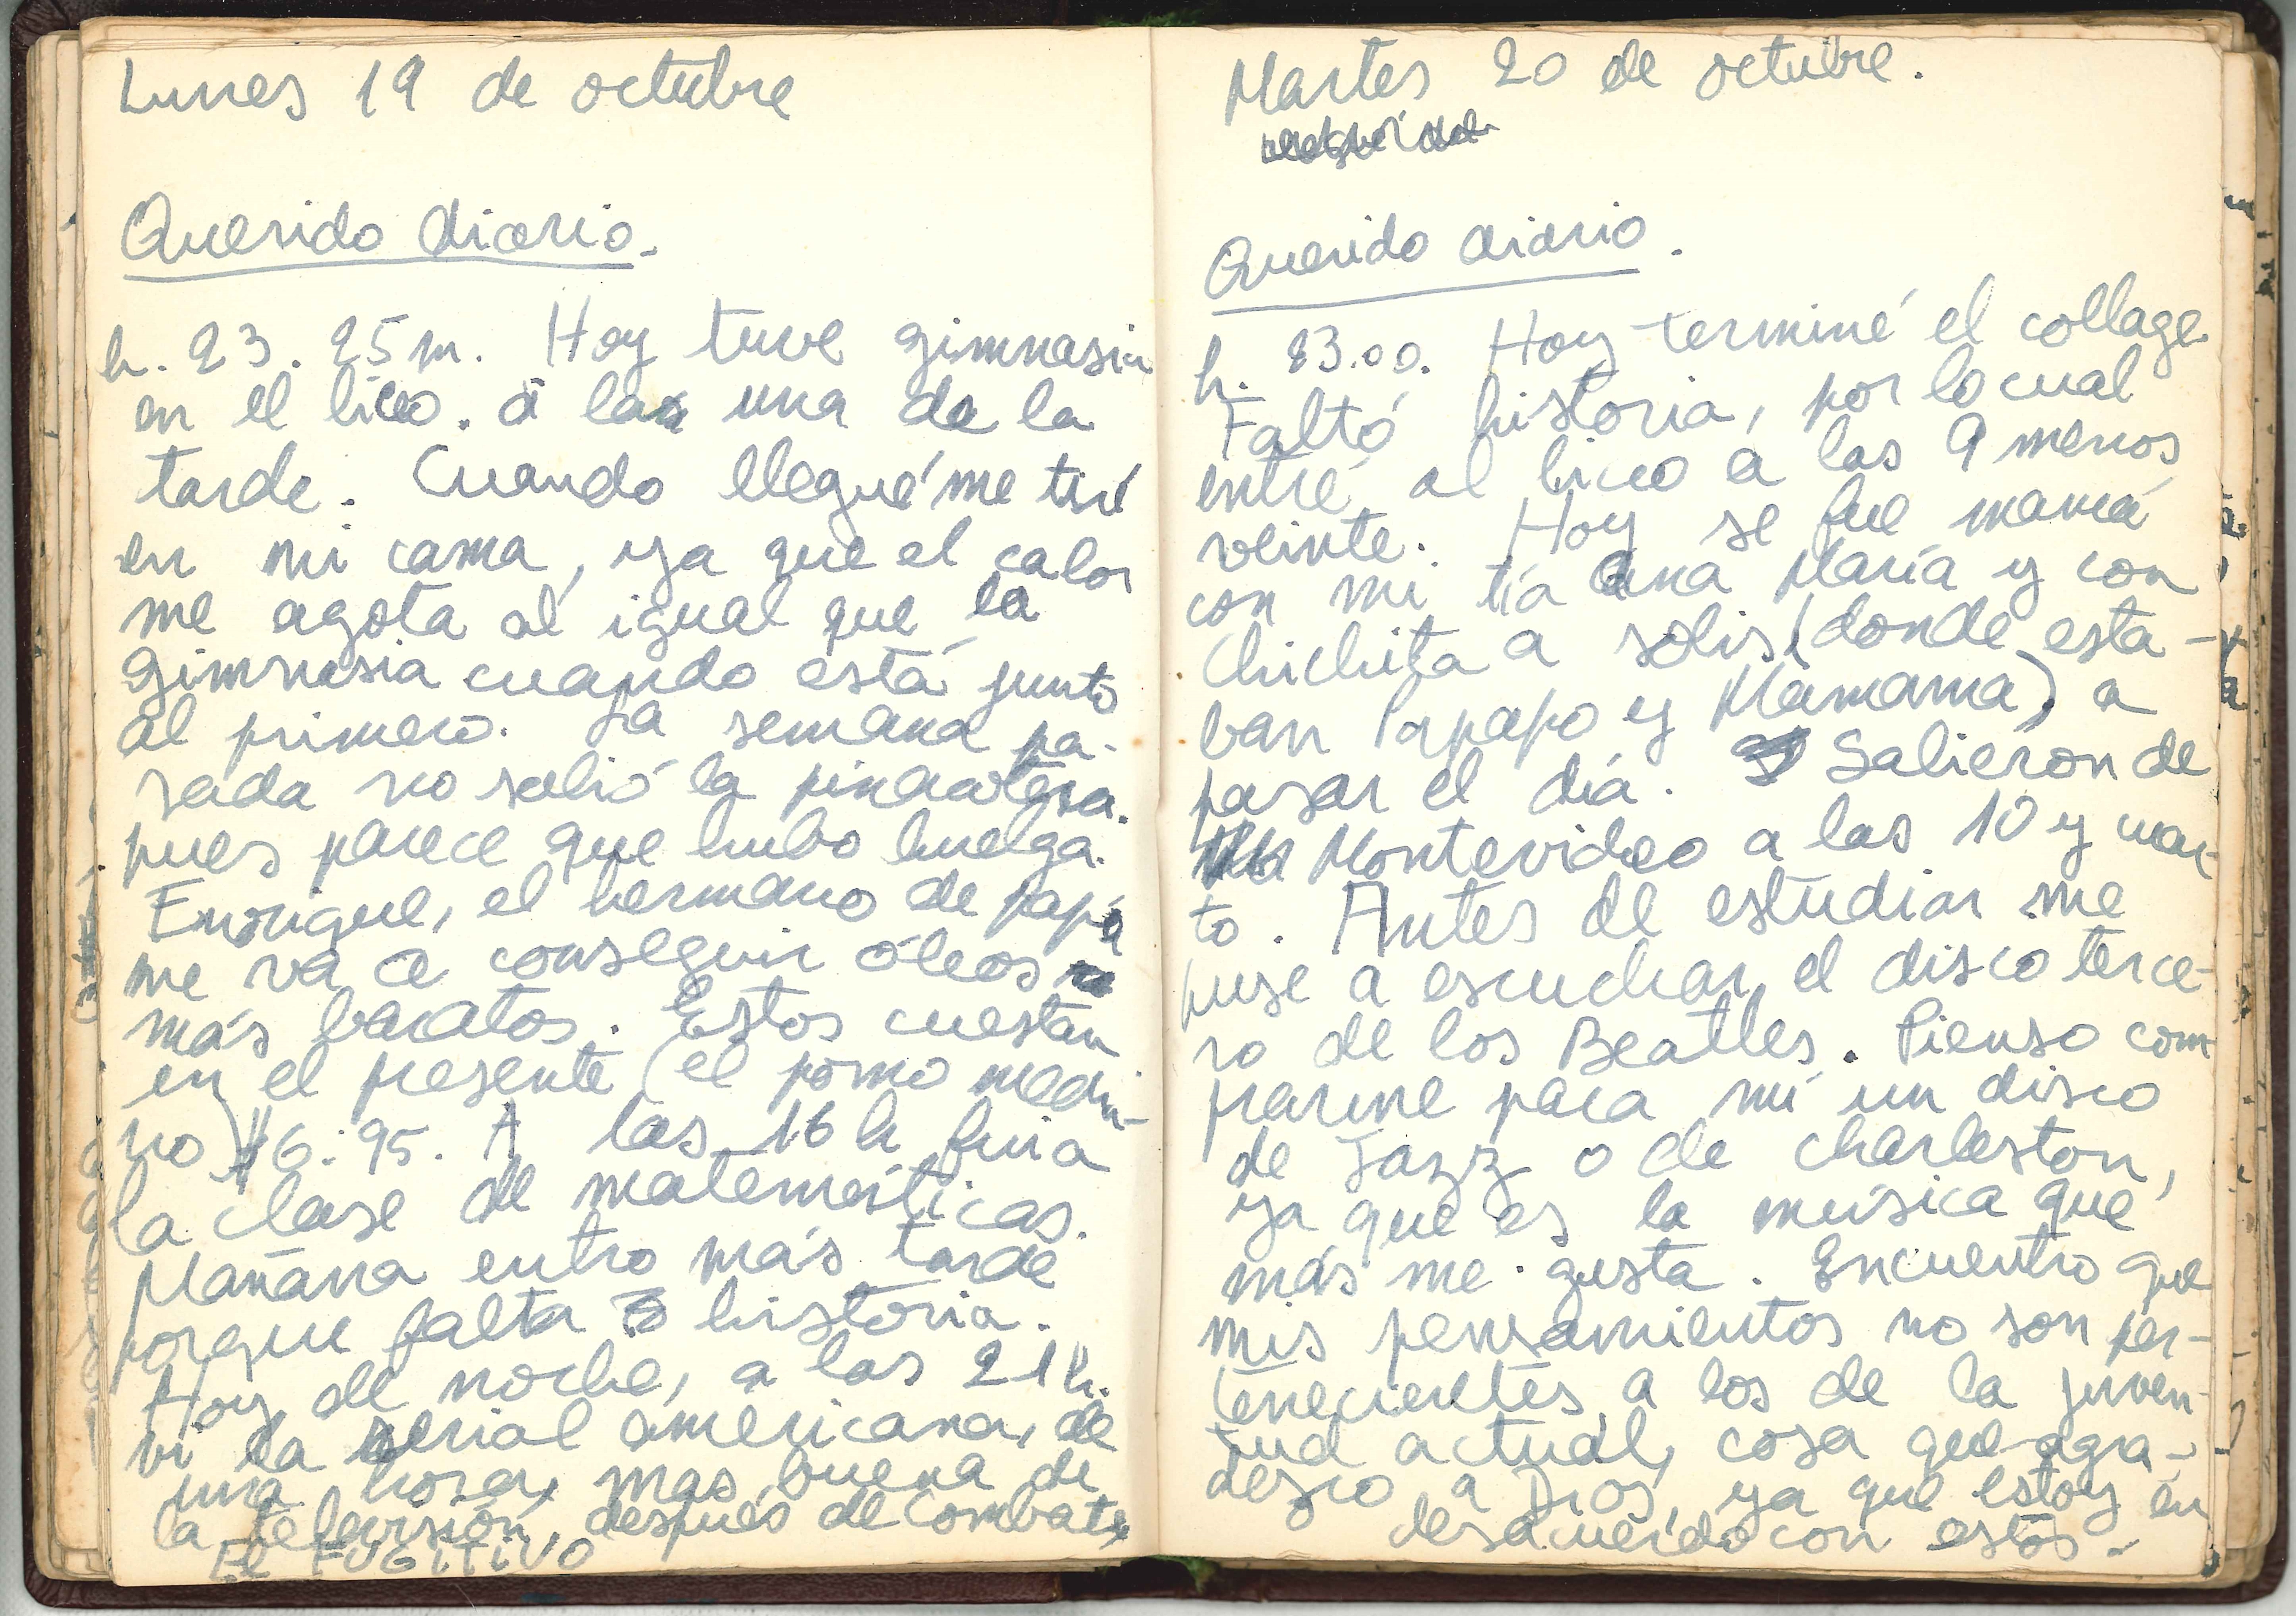 Lunes 19 de octubre
Querido diario.
h. 23. 25m. Hoy tuve gimnasia
en el liceo. a la una de la
tarde. Cuando llegué me tiré
en mi cama, ya que el calor
me agota al igual que la
gimnasia cuando está junto
al primero. La semana pa-
sada no salió la pinacoteca.
pues parece que hubo huelga.
Enrique, el hermano de papá
me va a conseguir óleos
más baratos. Estos cuestan
en el presente (el pomo media-
no) $6.95. A las 16 h fui a
la clase de matemáticas.
Mañana entro más tarde
porque falta historia.
Hoy de noche, a las 21h.
vi la serial americana, de
una hora, mas buena de
la televisión, después de Combate
El FUGITIVO
Martes 20 de octubre.
Querido diario.
h. 23.00. Hoy terminé el collage.
Faltó historia, por lo cual
entré al liceo a las 9 menos
veinte. Hoy se fue mamá
con mi tía Ana María y con
Chichita a Solis (donde esta-
ban Papapo y Mamama) a
pasar el día. Salieron de
Montevideo a las 10 y cuar-
to. Antes de estudiar me
puse a escuchar el disco terce-
ro de los Beatles. Pienso com-
prarme para mí un disco
de Jazz o de charleston,
ya que es la música que
más me gusta. Encuentro que
mis pensamientos no son per-
tenecientes a los de la juven-
tud actual, cosa que agra-
dezco a Dios, ya que estoy en
desacuerdo con estos.-